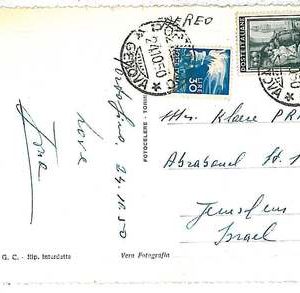 AEREO
GENOVA
24.10.50
LIRE
30
POSTE ITALIANE
GENOVA
Portofino, 24.10.50
Love
FOTOCELERE - TORINO
Mrs. Klaere
Abrabanel St.
Jerusalem
Israel
G. C. - Rip. Interdetta
Vera Fotografia